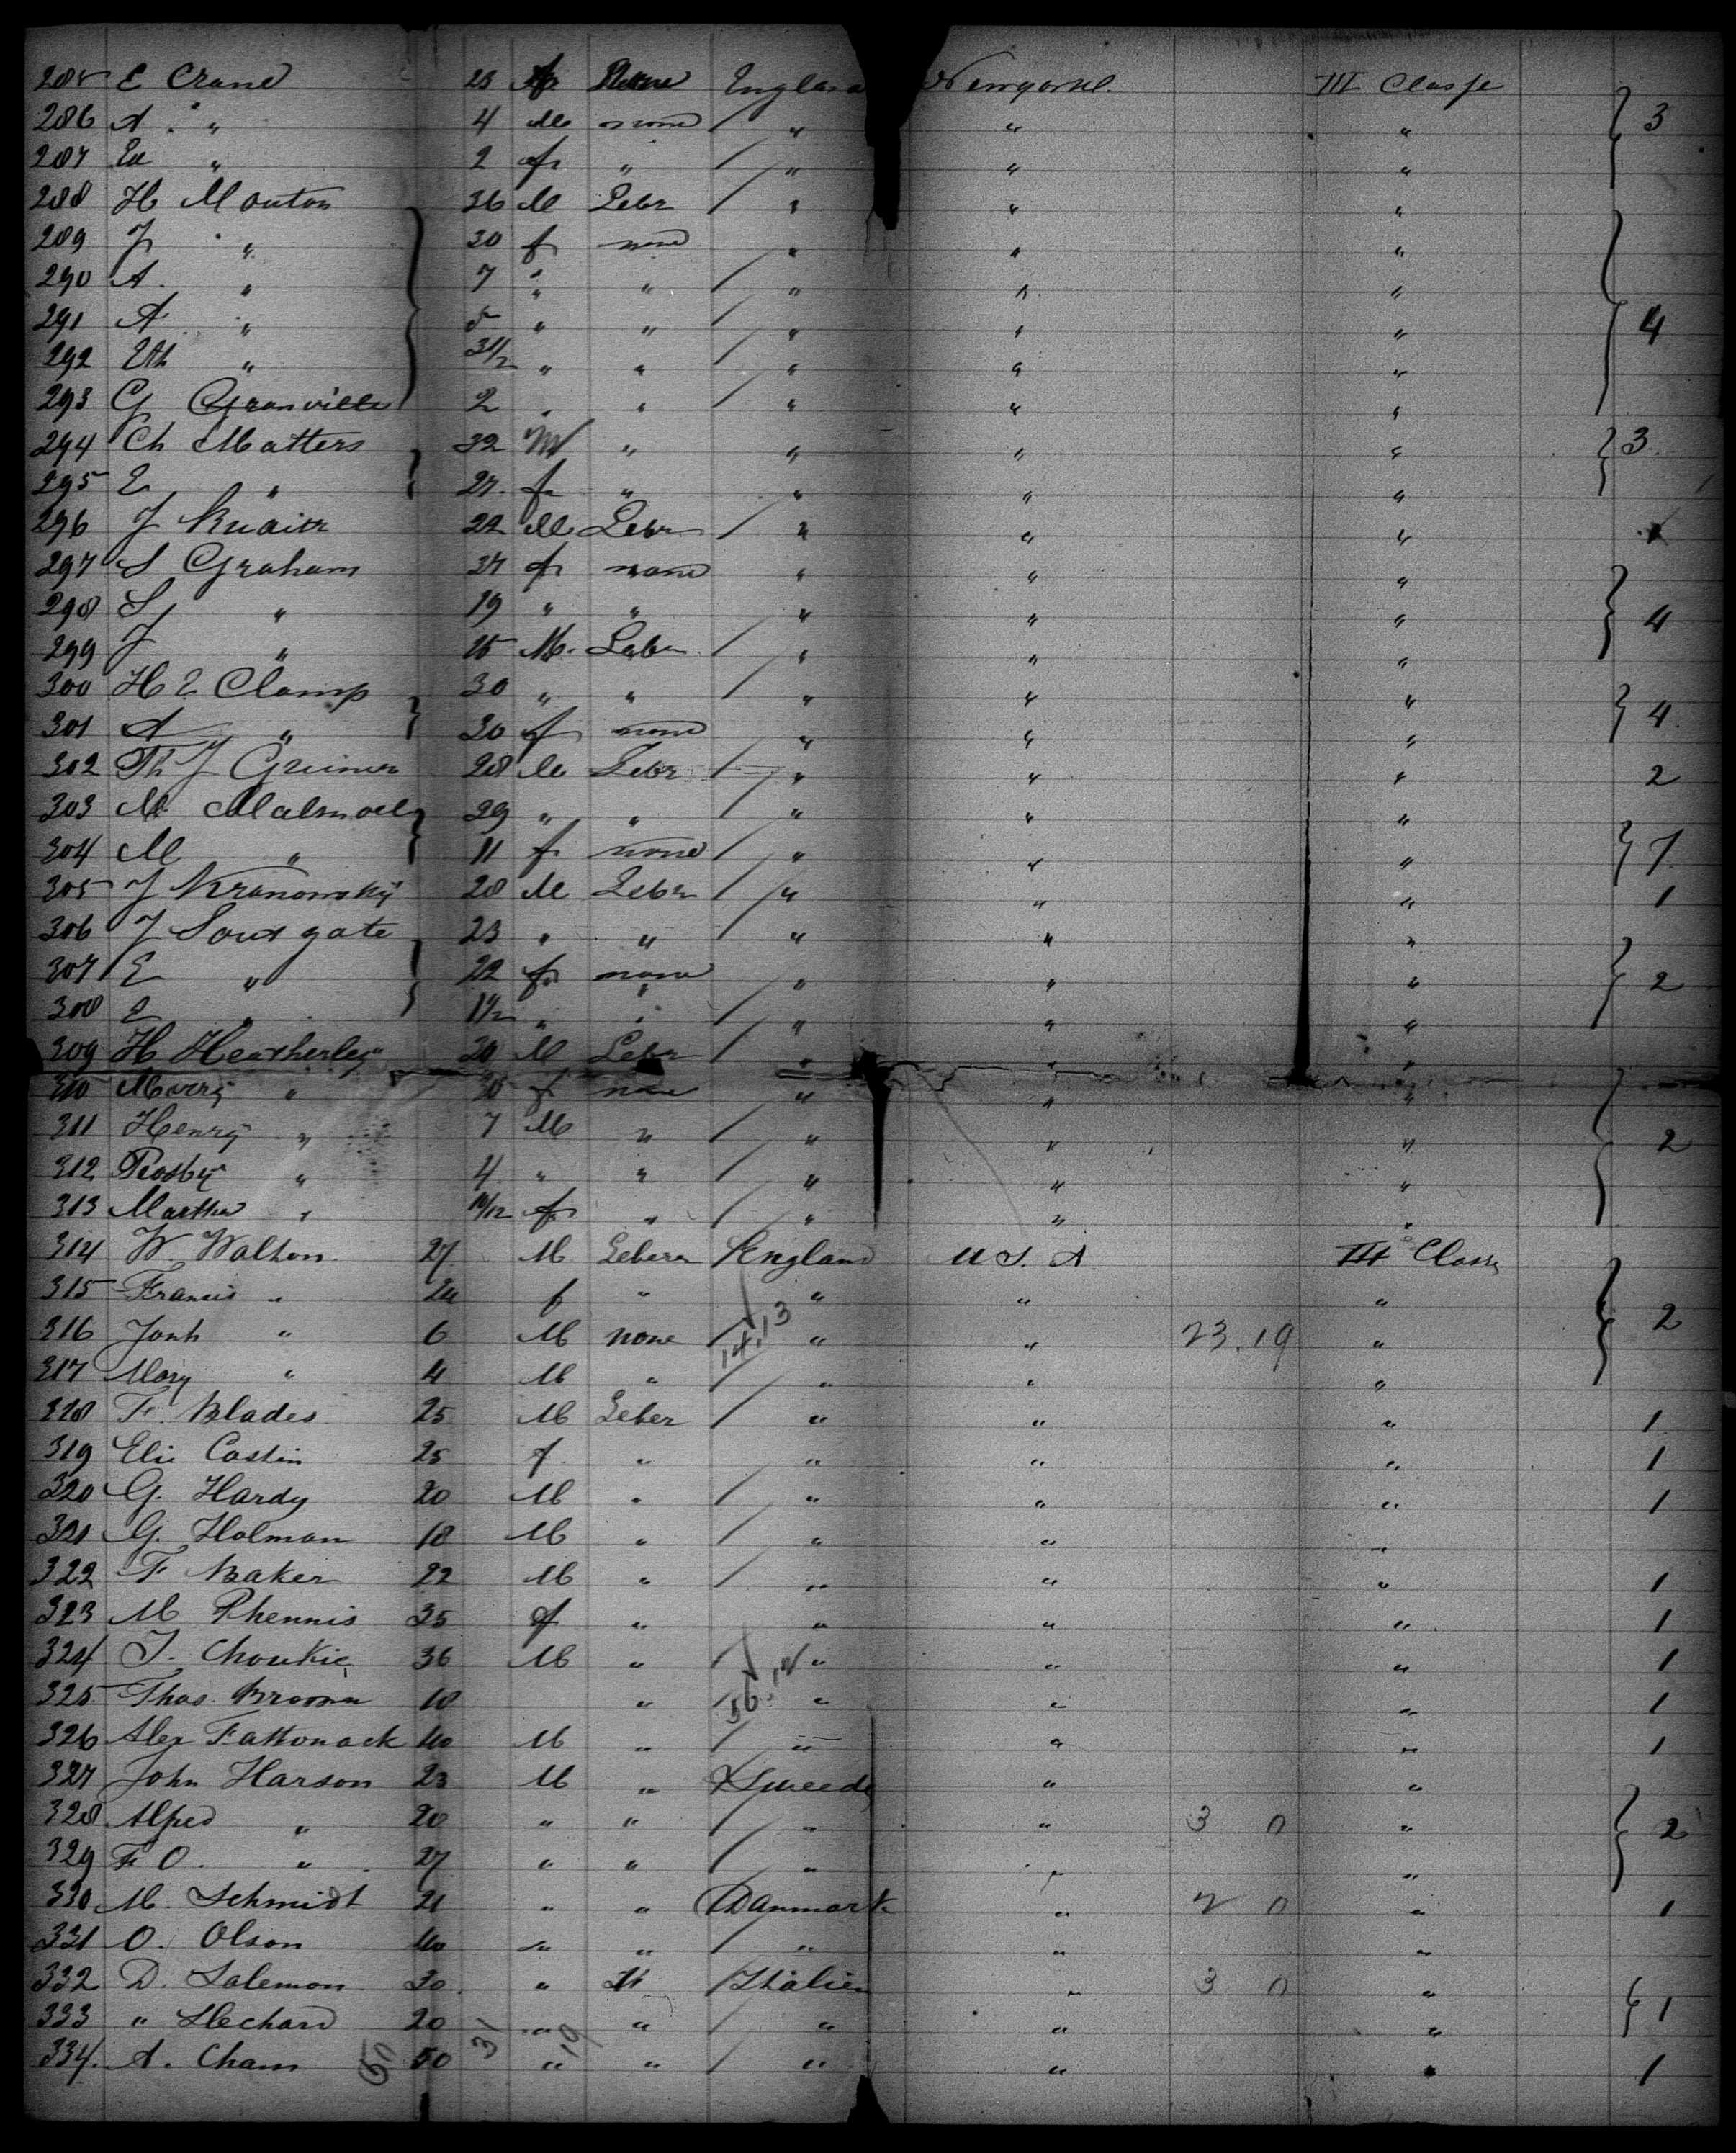 285 E Crane 23 f None England Newyork. III Classe
286 A. " 4 M none " " " 3
287 Ed " 2 f " " " "
288 H Mouton 36 M Lebr " " "
289 J " 30 f none " " "
290 A. " 7 " " " " "
291 A " 5 " " " " " 4
292 Eth " 3 1/2 " " " " "
293 G Granville 2 " " " " "
294 Ch Matters 32 M " " " " 3
295 E " 27. f " " " "
296 J 22 M Lebr " " " 1
297 S Graham 27 f none " " "
298 S " 19 " " " " " 4
299 J " 15 M. Labr " " "
300 H E Clamp 30 " " " " "
301 A " 30 f none " " " 4.
302 Th J Greiner 28 M Lebr " " " 2
303 M 29 " " " " "
304 M " 11 f none " " " 7.
305 J Kranowsky 28 M Lebr " " " 1
306 J Sout gate 23 " " " " "
307 E " 22 f none " " " 2
308 E " 1 1/2 " " " " "
309 H Heatherley 30 M Lebr " " "
310 Marry " 30 f none " " "
311 Henry " 7 M " " " " 2
312 " 4 " " " " "
313 Martha " 10/12 f " " " "
314 W. Walton. 27. M Lebera England U S. A III Class
315 Francis " 24 f " " " "
316 Jonh " 6 M none 14.13 " " 23.19 " 2
317 Mary " 4 M " " " "
318 F. Blades 25 M Leber " " " 1
319 Eli Costin 25 f " " " " 1
320 G. Hardy 20 M " " " " 1
321 G. Holman 18 M " " " "
322 F Baker 22 M " " " " 1
323 M Phennis 35 f " " " " 1
324 J. Choukie 36 M " " " " 1
325 Thos. Broom 18 " 56.12 " " " 1
326 Alex Fattonack 40 M " " " " 1
327 John Harson 23 M " Sweede " "
328 Alfred " 20 " " " " 3 0 " 2
329 F O. " 27 " " " " "
330 M. Schmidt 21 " " Danmark " 2 0 " 1
331 O. Olson 40 " " " " "
332 D. Salemon 30 " " Italien " 3 0 "
333 " Hechard 20 " " " " " 1
334. A. Cham 50 " " " " " 1
50 31 19